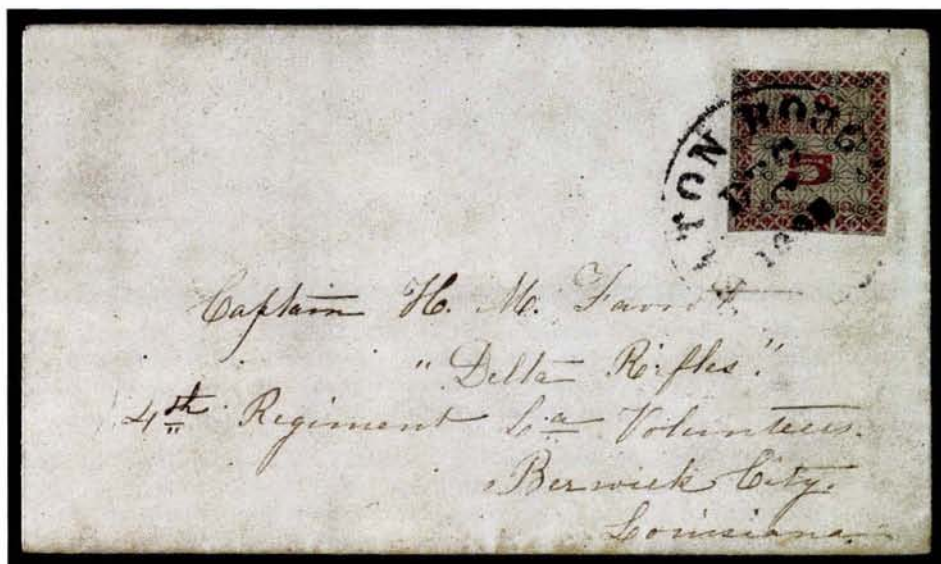 5
TON ROUG
DEC
Captain H. M. Favrot.
"Delta Rifles."
4th Regiment La Volunteers.
Berwick City.
Louisiana.